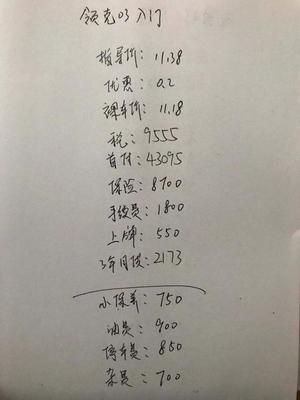 领克03入门
指导价：11.38
优惠：0.2
裸车价：11.18
税：9555
首付：43095
保险：8700
手续费：1800
上牌：550
3年月供：2173
小保养：750
油费：900
停车费：850
杂费：700